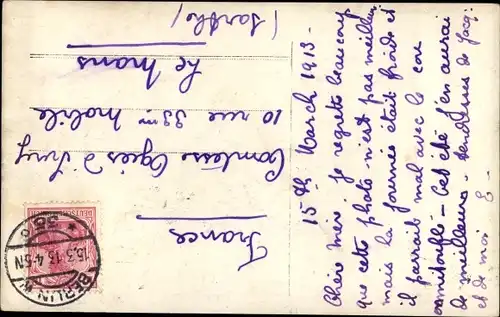 15th March 1913.
Chère Mère. Je regrette beaucoup
que cette photo n'est pas meilleure
mais la journée était froide et
il parrait mal avec le cou
emmitouflé - Cet été j'en aurai
de meilleures - tendresses de Jacq:
et de moi E -
Comtesse Ogier d'Ivry
10 rue 33me Mobile
Le Mans
(Sarthe)
France
BERLIN W
15.3.13. 4-5N
* 35 c
DEUTSCHES